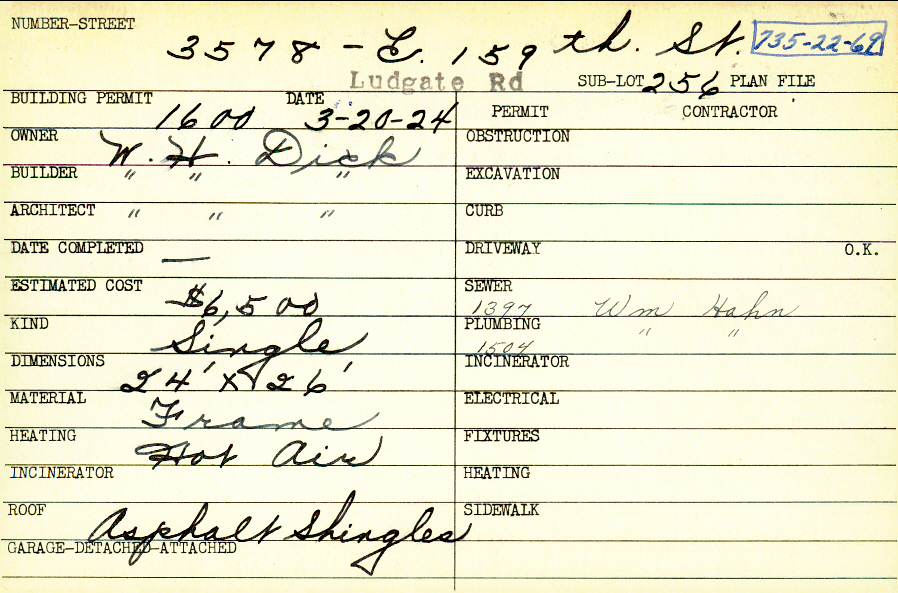 NUMBER-STREET
3578 - E. 159th. St. 735-22-69
Ludgate Rd SUB-LOT 256 PLAN FILE
BUILDING PERMIT 1600 DATE 3-20-24
PERMIT CONTRACTOR
OWNER W. H. Dick
OBSTRUCTION
BUILDER " " "
EXCAVATION
ARCHITECT " " "
CURB
DATE COMPLETED —
DRIVEWAY O.K.
ESTIMATED COST $6,500
SEWER 1397 Wm Hahn
KIND Single
PLUMBING 1504 " "
DIMENSIONS 24' x 26'
INCINERATOR
MATERIAL Frame
ELECTRICAL
HEATING Hot Air
FIXTURES
INCINERATOR
HEATING
ROOF Asphalt Shingles
SIDEWALK
GARAGE-DETACHED-ATTACHED